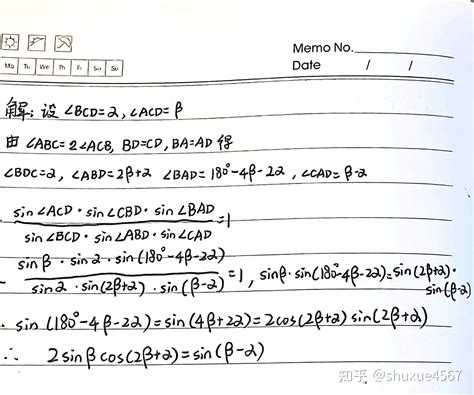 Memo No.
Mo Tu We Th Fr Sa Su
Date / /
解: 设 ∠BCD=α, ∠ACD=β
由 ∠ABC=2∠ACB, BD=CD, BA=AD 得
∠BDC=α, ∠ABD=2β+α ∠BAD= 180°-4β-2α, ∠CAD=β-α
sin∠ACD · sin∠CBD · sin∠BAD
=1
sin∠BCD · sin∠ABD · sin∠CAD
sinβ · sinα · sin(180°-4β-2α)
=1, sinβ·sin(180°-4β-2α)=sin(2β+α)·
sinα · sin(2β+α) · sin(β-α)
sin(β-α)
sin (180°-4β-2α)=sin(4β+2α)=2cos(2β+α) sin(2β+α)
∴ 2sinβcos(2β+α)=sin(β-α)
知乎 @shuxue4567